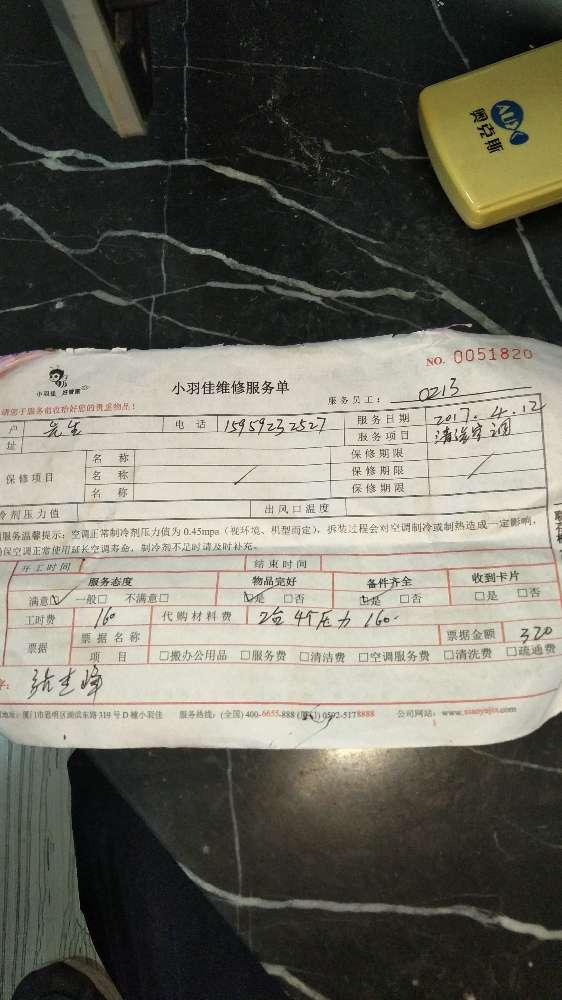 AUX
奥克斯
NO. 0051820
小羽佳 好管家
小羽佳维修服务单
服务员工: 0213
请您于服务前收拾好您的贵重物品!
户 先生 电话 15959232527 服务日期 2017.4.12
址 服务项目 清洗空调
保修项目 名称 保修期限
名称 保修期限
名称 保修期限
冷剂压力值 出风口温度
服务温馨提示: 空调正常制冷剂压力值为 0.45mpa (视环境、机型而定), 拆装过程会对空调制冷或制热造成一定影响,
保空调正常使用延长空调寿命, 制冷剂不足时请及时补充。
开工时间 结束时间
服务态度 物品完好 备件齐全 收到卡片
满意☑ 一般□ 不满意□ ☑是 □否 ☑是 □否 □是 □否
工时费 160 代购材料费 2台 4个压力 160.
票据 票据名称 票据金额 320
项目 □搬办公用品 □服务费 □清洁费 □空调服务费 □清洗费 □疏通费
地址: 厦门市思明区湖滨东路 319 号 D 幢小羽佳 服务热线: (全国) 400-6655-888 (厦门) 0592-5178888 公司网站: www.xiaoyujia.com